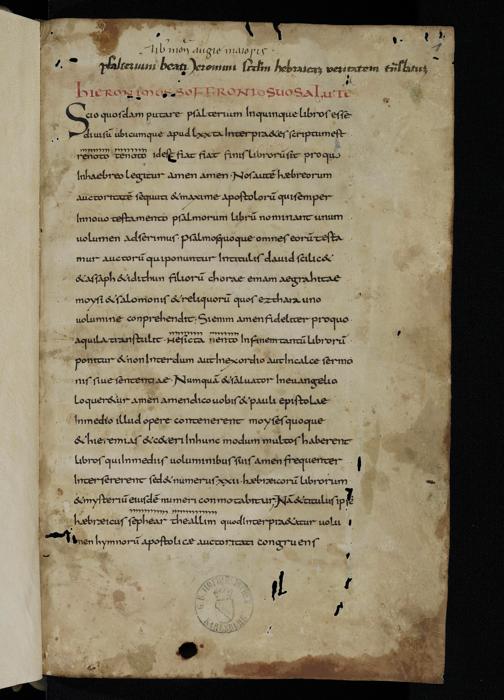 Lib mon augie maioris
psalterium beati Jeronimi scdm hebraicam veritatem trslatus
hIERONIMUS SOFFRONIO SUO SALUTE
Scio quosdam putare psalterium Inquinque libros esse
diuisū ubicumque apud lxxta Interpraetes scriptumest
renoto tenoto idest fiat fiat finis librorū sit pro quo
Inhaebreo legitur amen amen. Nos autē hæbreorum
auctoritatē sequuti & maxime apostolorū qui semper
Innouo testamento psalmorum librū nominant unum
uolumen adserimus. Psalmosquoque omnes eorū testa
mur auctorū qui ponuntur Intitulis dauid scilic&
& assaph & idithun filiorū chorae eman aegrahitae
moysi & salomonis & reliquorū quos ezthara uno
uolumine conprehendit. Si enim amen fideliter pro quo
aquila transtulit nesicta nento Infine tantū librorū
ponitur & non Interdum aut Inexordio aut Incalce sermo
nis siue sententiae. Numquā & saluator Ineuangelio
Loquer&ur amen amen dico uobis & pauli epistolae
Inmedio illud opere contenerent moyses quoque
& hieremias & c&eri Inhunc modum multos haberent
libros qui Inmediis uoluminibus suis amen frequenter
Intersererent sed & numerus xxii hæbreicorū librorum
& mysteriū eiusdē numeri conmotabitur. Nā & titulus ipse
hæbreicus sephear theallim quod Interpraetatur uolu
men hymnorū apostolicæ auctoritati congruens